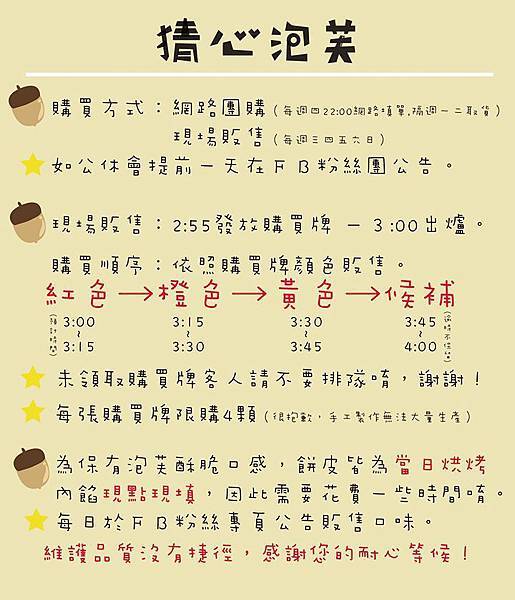 猜心泡芙
購買方式：網路團購（每週四22:00網路填單,隔週一二取貨）
現場販售（每週三四五六日）
如公休會提前一天在FB粉絲團公告。
現場販售：2:55發放購買牌 － 3:00出爐。
購買順序：依照購買牌顏色販售。
紅色→橙色→黃色→候補
(預計時間) 3:00～3:15 3:15～3:30 3:30～3:45 3:45～4:00
未領取購買牌客人請不要排隊唷，謝謝！
每張購買牌限購4顆（很抱歉，手工製作無法大量生產）
為保有泡芙酥脆口感，餅皮皆為當日烘烤
內餡現點現填，因此需要花費一些時間唷。
每日於FB粉絲專頁公告販售口味。
維護品質沒有捷徑，感謝您的耐心等候！